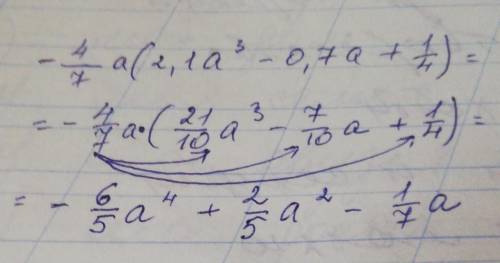 -4/7 a(2,1a³ - 0,7a + 1/4) =
= -4/7 a·(21/10 a³ - 7/10 a + 1/4) =
= -6/5 a⁴ + 2/5 a² - 1/7 a